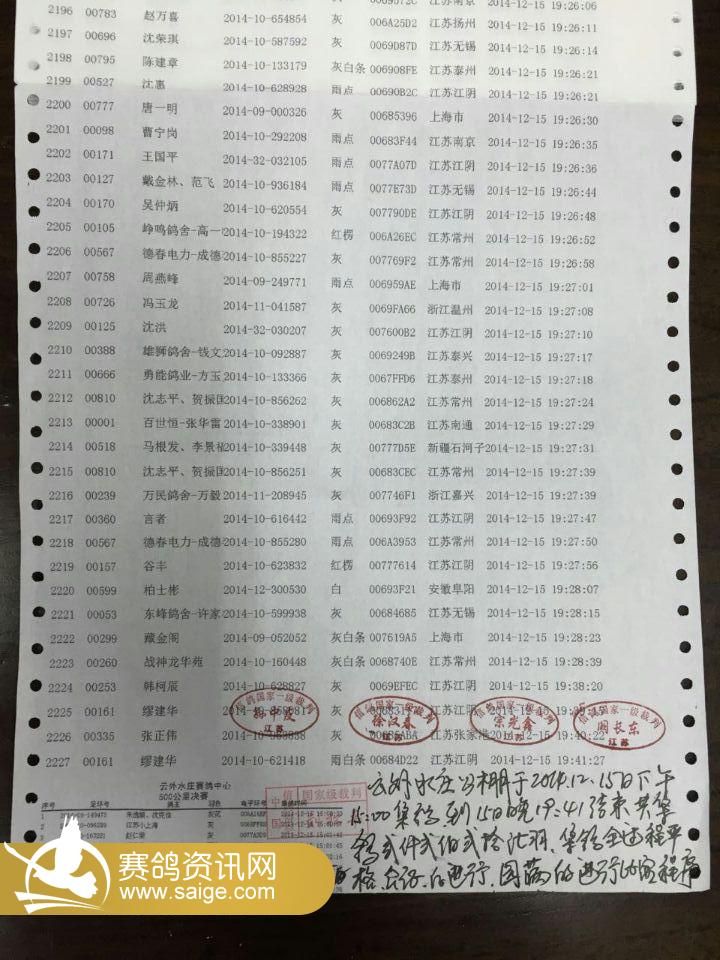 2196 00783 赵万喜 2014-10-654854 灰 006A25D2 江苏扬州 2014-12-15 19:26:11
2197 00696 沈荣琪 2014-10-587592 灰 0069D87D 江苏无锡 2014-12-15 19:26:14
2198 00795 陈建章 2014-10-133179 灰白条 006908FE 江苏泰州 2014-12-15 19:26:21
2199 00527 沈惠 2014-10-628928 雨点 00690B2C 江苏江阴 2014-12-15 19:26:21
2200 00777 唐一明 2014-09-000326 灰 00685396 上海市 2014-12-15 19:26:30
2201 00098 曹宁岗 2014-10-292208 雨点 00683F44 江苏南京 2014-12-15 19:26:35
2202 00171 王国平 2014-32-032105 雨点 0077A07D 江苏江阴 2014-12-15 19:26:36
2203 00127 戴金林、范飞 2014-10-936184 雨点 0077E73D 江苏无锡 2014-12-15 19:26:44
2204 00170 吴仲炳 2014-10-620554 灰 007790DE 江苏江阴 2014-12-15 19:26:48
2205 00105 峥鸣鸽舍-高一 2014-10-194322 红楞 006A26EC 江苏常州 2014-12-15 19:26:52
2206 00567 德春电力-成德 2014-10-855227 灰 007769F2 江苏常州 2014-12-15 19:26:58
2207 00758 周燕峰 2014-09-249771 雨点 006959AE 上海市 2014-12-15 19:27:01
2208 00726 冯玉龙 2014-11-041587 灰 0069FA66 浙江温州 2014-12-15 19:27:08
2209 00125 沈洪 2014-32-030207 灰 007600B2 江苏江阴 2014-12-15 19:27:10
2210 00388 雄狮鸽舍-钱文 2014-10-092887 灰 0069249B 江苏泰兴 2014-12-15 19:27:17
2211 00666 勇能鸽业-方玉 2014-10-133366 灰 0067FFD6 江苏泰州 2014-12-15 19:27:18
2212 00810 沈志平、贺振国 2014-10-856262 灰 006862A2 江苏常州 2014-12-15 19:27:24
2213 00001 百世恒-张华雷 2014-10-338901 灰 00683C2B 江苏南通 2014-12-15 19:27:29
2214 00518 马根发、李景福 2014-10-339448 灰 00777D5E 新疆石河子 2014-12-15 19:27:31
2215 00810 沈志平、贺振国 2014-10-856251 灰 00683CEC 江苏常州 2014-12-15 19:27:39
2216 00239 万民鸽舍-万毅 2014-11-208945 灰 007746F1 浙江嘉兴 2014-12-15 19:27:39
2217 00360 言者 2014-10-616442 雨点 00693F92 江苏江阴 2014-12-15 19:27:47
2218 00567 德春电力-成德 2014-10-855280 雨点 006A3953 江苏常州 2014-12-15 19:27:50
2219 00157 谷丰 2014-10-623832 红楞 00777614 江苏江阴 2014-12-15 19:27:56
2220 00599 柏士彬 2014-12-300530 白 00693F21 安徽阜阳 2014-12-15 19:28:07
2221 00053 东峰鸽舍-许家 2014-10-599938 灰 00684685 江苏无锡 2014-12-15 19:28:15
2222 00299 藏金阁 2014-09-052052 灰白条 007619A5 上海市 2014-12-15 19:28:23
2223 00260 战神龙华苑 2014-10-160448 灰白条 0068740E 江苏常州 2014-12-15 19:28:39
2224 00253 韩柯辰 2014-10-628827 灰 0069EFEC 江苏江阴 2014-12-15 19:38:20
2225 00161 缪建华 灰
2226 00335 张正伟 灰 江苏张家港 2014-12-15 19:40:22
2227 00161 缪建华 2014-10-621418 雨点 00684D22 江苏江阴 2014-12-15 19:41:27
信鸽国家一级裁判 江苏
信鸽国家一级裁判 徐汉春 江苏
信鸽国家一级裁判 宗光鑫 江苏
信鸽国家一级裁判 周长东 江苏
云外水庄赛鸽中心
500公里决赛
云外水庄公棚于2014.12.15日下午
15:00集鸽到15日晚19:41结束共集
程序
赛鸽资讯网
www.saige.com